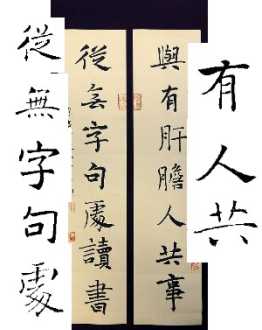 有人共
與有肝膽人共事
從無字句處讀書
從無字句處